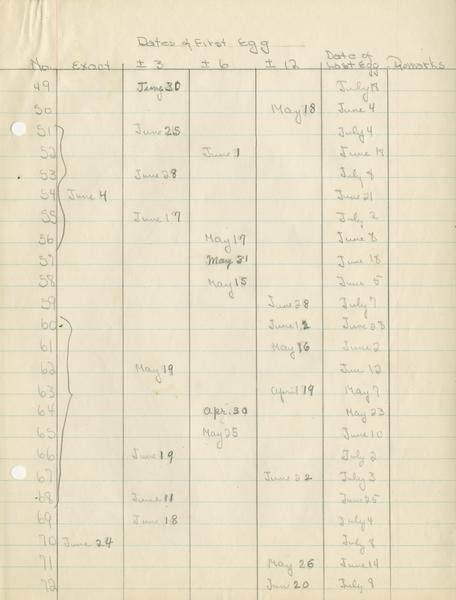 Dates of First Egg
No. Exact ± 3 ± 6 ± 12 Date of Last Egg Remarks
49 June 30 July
50 May 18 June 4
51 June 25 July 4
52 June 1 June 19
53 June 28 July 8
54 June 4 June 21
55 June 17 July 2
56 May 17 June 8
57 May 31 June 18
58 May 15 June 5
59 June 28 July 7
60 June 12 June 28
61 May 16 June 2
62 May 19 Jun 12
63 April 19 May 7
64 Apr. 30 May 23
65 May 25 June 10
66 June 19 July 2
67 June 22 July 3
68 June 11 June 25
69 June 18 July 4
70 June 24 July 8
71 May 26 June 14
72 Jun 20 July 9